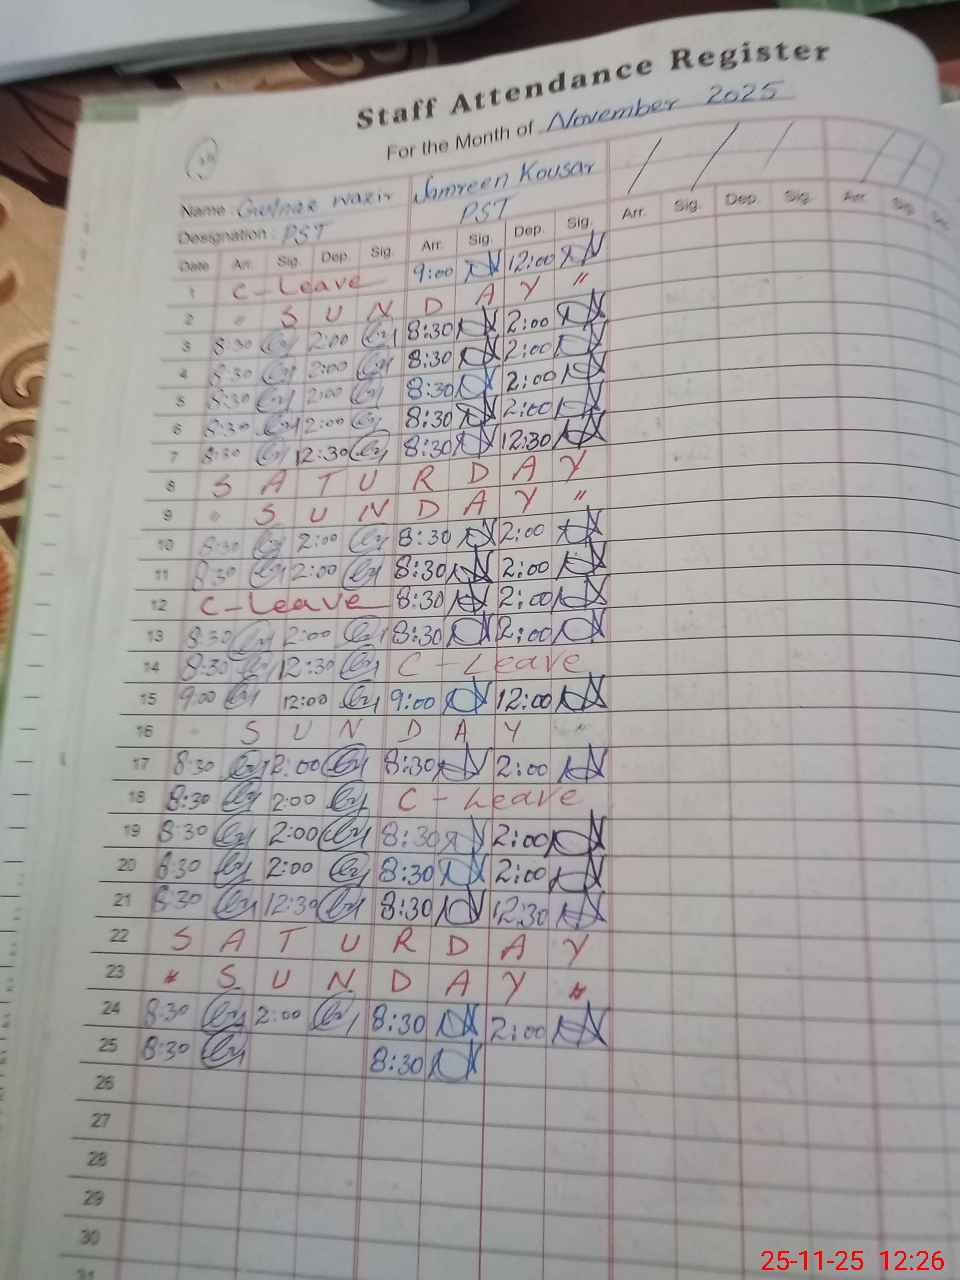 Staff Attendance Register
For the Month of November 2025
Name : Gulnar Samreen Kousar
Designation : PST PST
Date Arr. Sig. Dep. Sig. Arr. Sig. Dep. Sig. Arr. Sig. Dep. Sig. Arr. Sig.
1 C-Leave 9:00 12:00
2 " S U N D A Y "
3 8:30 2:00 8:30 2:00
4 8:30 2:00 8:30 2:00
5 8:30 2:00 8:30 2:00
6 8:30 2:00 8:30 2:00
7 8:30 12:30 8:30 12:30
8 S A T U R D A Y
9 " S U N D A Y "
10 8:30 2:00 8:30 2:00
11 8:30 2:00 8:30 2:00
12 C-Leave 8:30 2:00
13 8:30 2:00 8:30 2:00
14 8:30 12:30 C-Leave
15 9:00 12:00 9:00 12:00
16 " S U N D A Y "
17 8:30 2:00 8:30 2:00
18 8:30 2:00 C-Leave
19 8:30 2:00 8:30 2:00
20 8:30 2:00 8:30 2:00
21 8:30 12:30 8:30 12:30
22 S A T U R D A Y
23 " S U N D A Y "
24 8:30 2:00 8:30 2:00
25 8:30 8:30
26
27
28
29
30
31
25-11-25 12:26